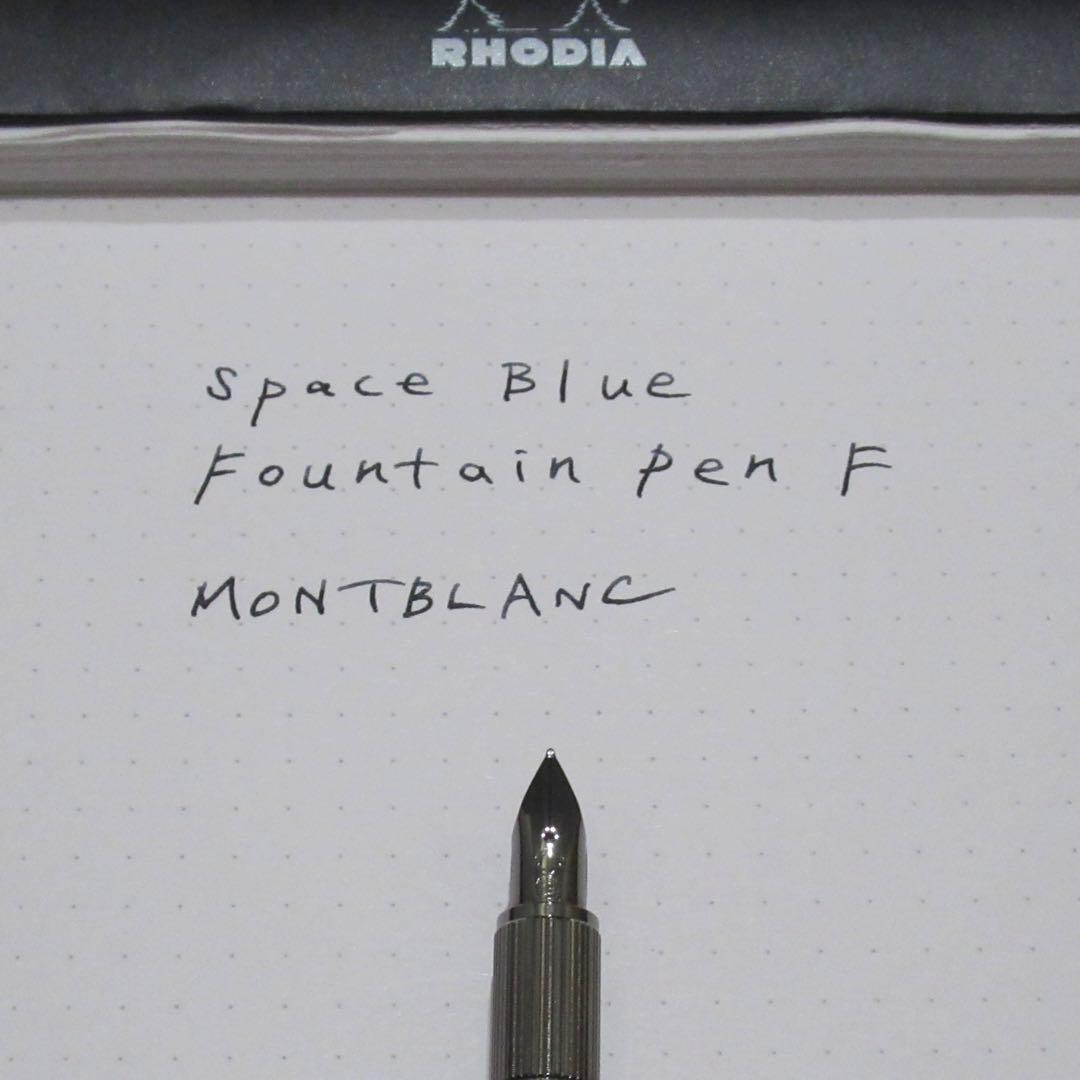 RHODIA
Space Blue
Fountain pen F
MONTBLANC